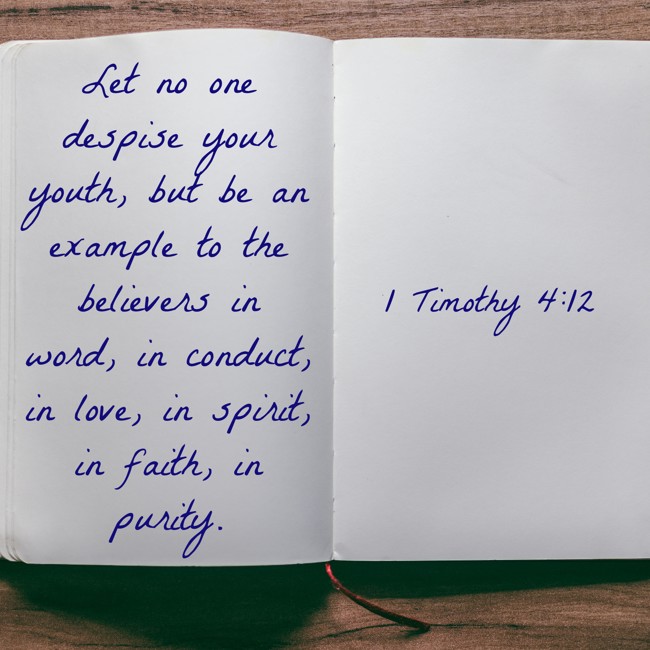 Let no one
despise your
youth, but be an
example to the
believers in
word, in conduct,
in love, in spirit,
in faith, in
purity.
1 Timothy 4:12